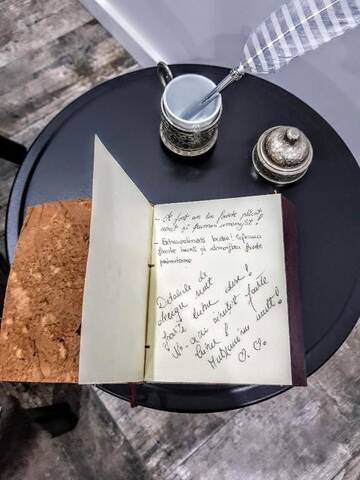 - A fost un loc foarte plăcut
curat și frumos amenajat!
- Extraordinară
foarte curată și atmosfera foarte
primitoare
Detaliile de
design sunt
foarte bine alese!
Ne-am simțit foarte
bine!
Mulțumim mult!